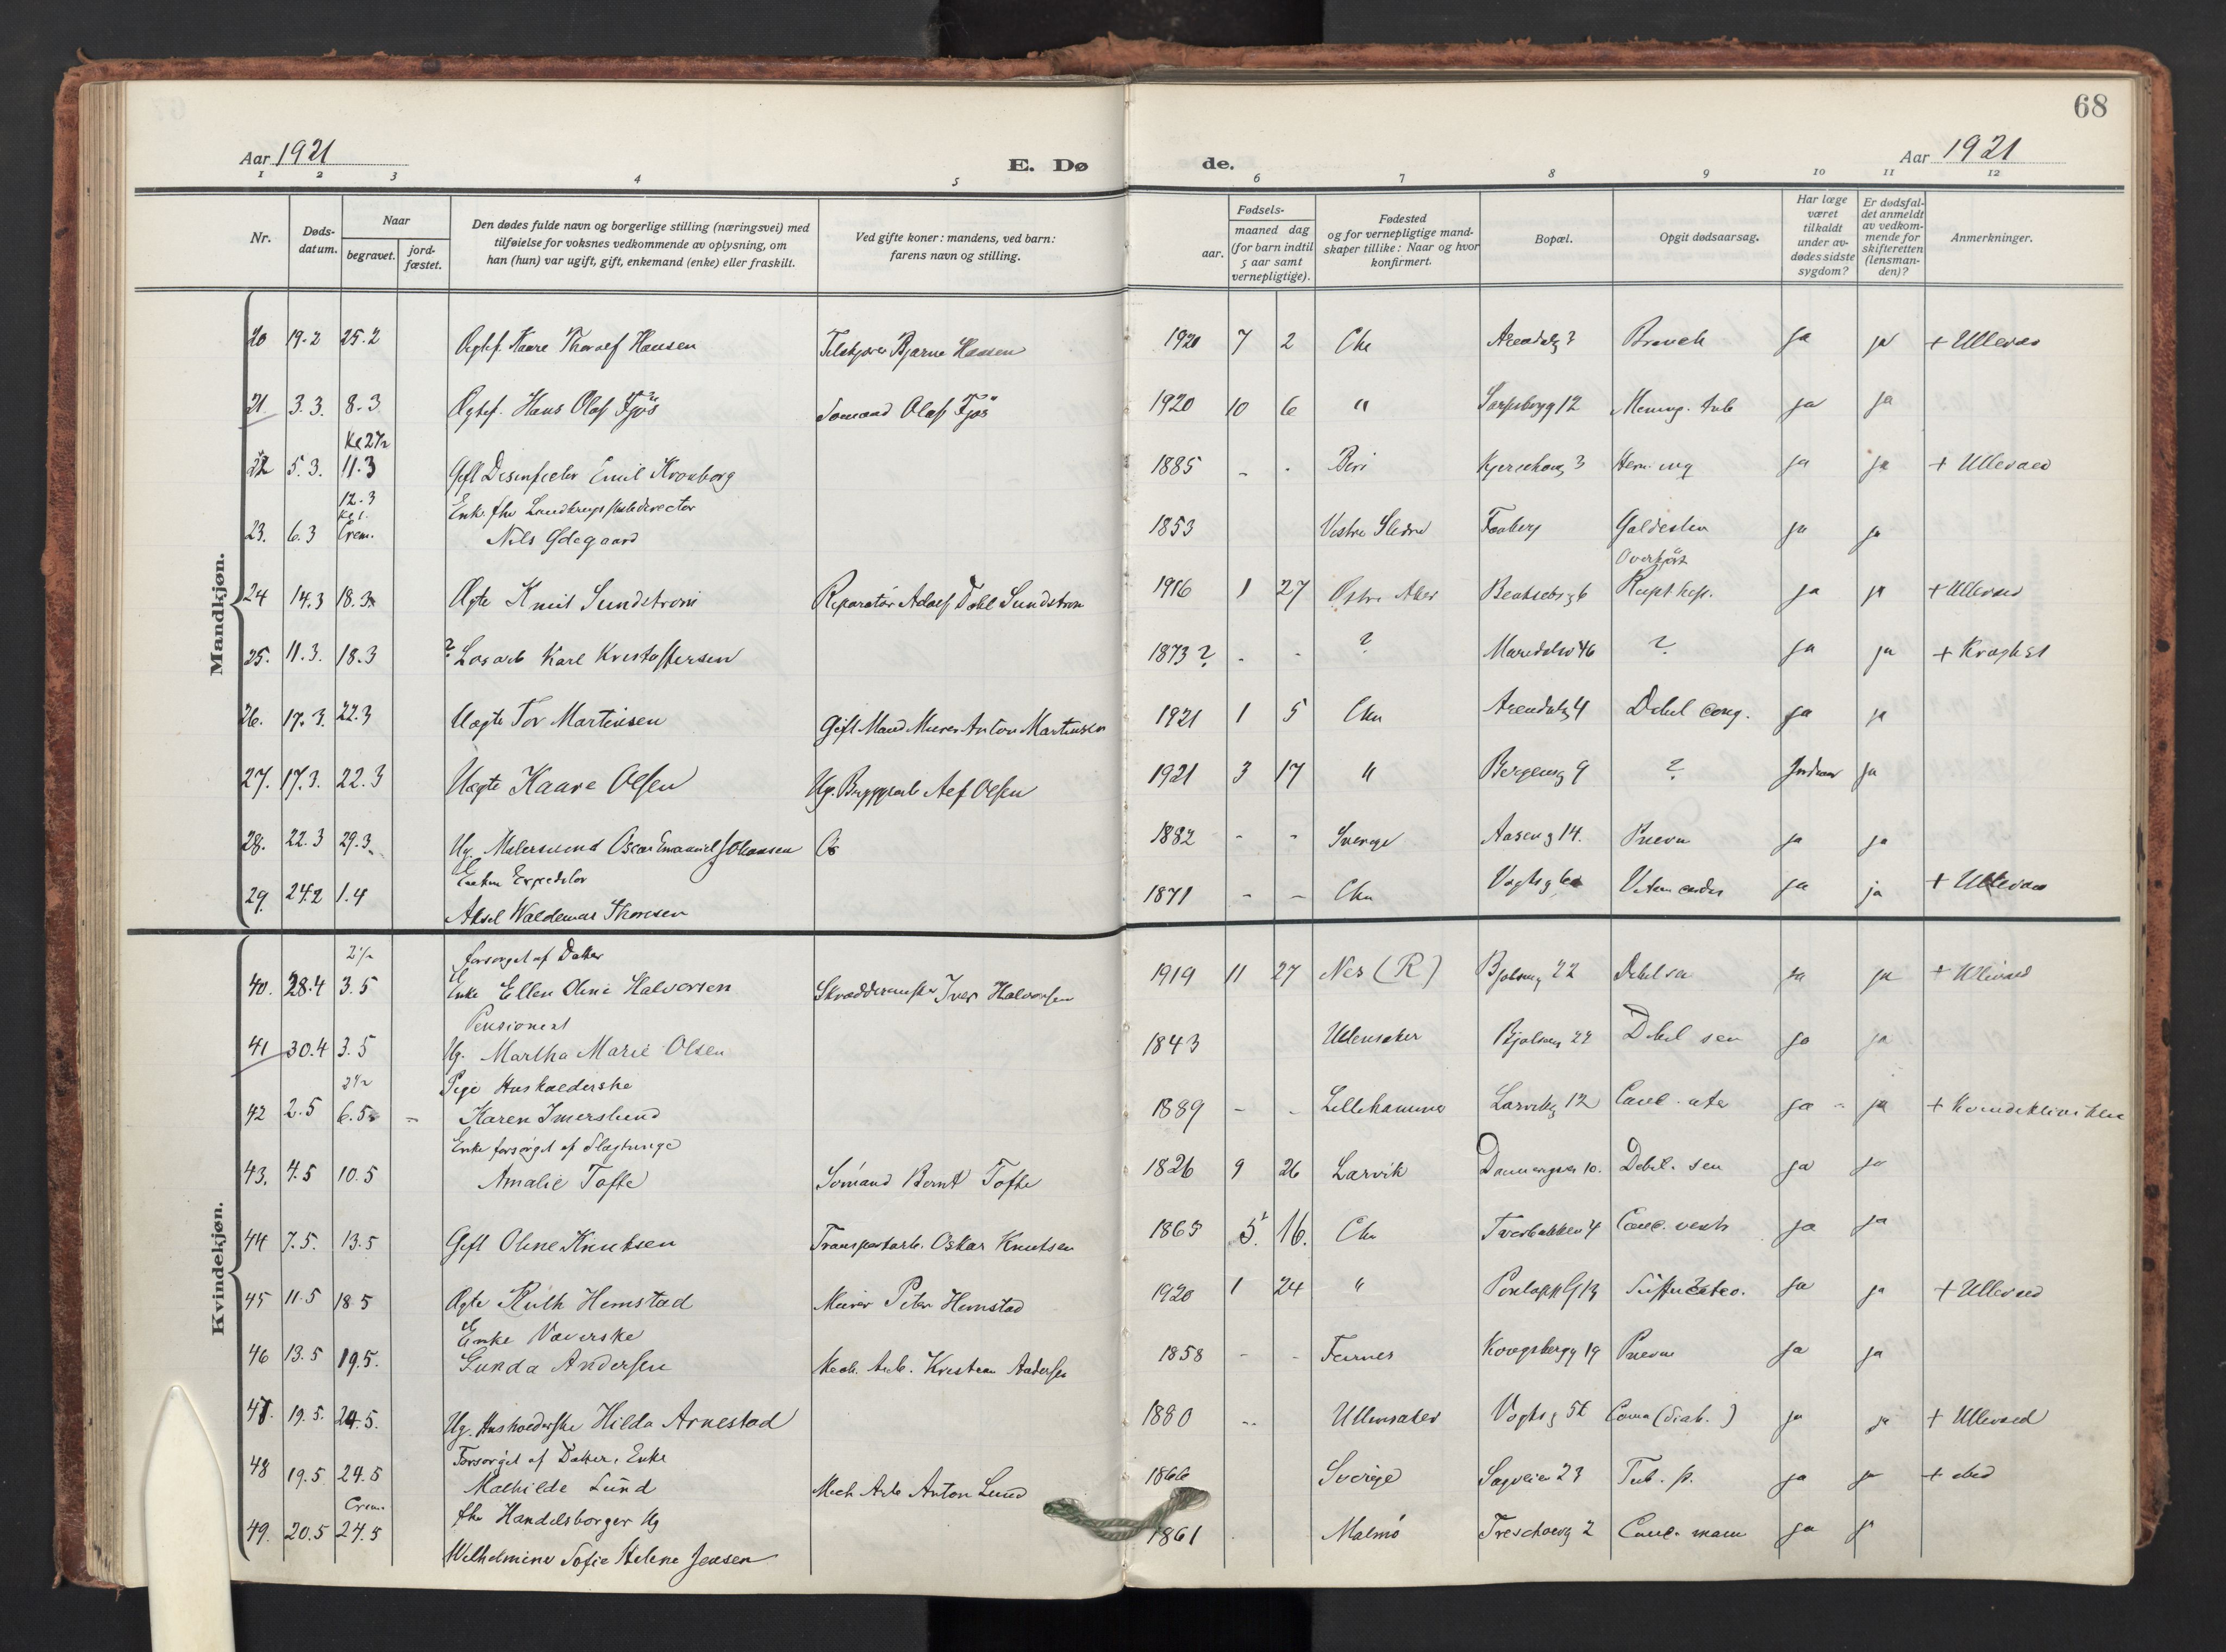 68
Aar 1921
E. Dø
de.
Aar 1921
1 2 3 4 5 6 7 8 9 10 11 12
Nr.
Døds-datum.
Naar
begravet.
jord-fæstet.
Den dødes fulde navn og borgerlige stilling (næringsvei) med
tilføielse for voksnes vedkommende av oplysning, om
han (hun) var ugift, gift, enkemand (enke) eller fraskilt.
Ved gifte koner: mandens, ved barn:
farens navn og stilling.
Fødsels-
aar.
maaned dag
(for barn indtil
5 aar samt
vernepligtige).
Fødested
og for vernepligtige mand-
skaper tillike: Naar og hvor
konfirmert.
Bopæl.
Opgit dødsaarsag.
Har læge
været
tilkaldt
under av-
dødes sidste
sygdom?
Er dødsfal-
det anmeldt
av vedkom-
mende for
skifteretten
(lensman-
den)?
Anmerkninger.
Mandkjøn.
20 19.2 25.2 Ægtef. Kaare Thoralf Hansen Bjarne Hansen 1920 7 2 Chr Arendalg 3 Bronch ja ja + Ullevaal
21 3.3. 8.3 Ægtef. Hans Olaf Fjøs Sømand Olaf Fjøs 1920 10 6 " Sarpsborgg 12 Mening. tub ja ja
Kl 2½
22 5.3. 11.3 Gift Desinfektør Emil Kronborg 1885 - - Biri 3 ja ja + Ullevaal
12.3
Kl 1. Enkem. fhv Landbrugsskoledirector
23. 6.3 Crem. Nils Ødegaard 1853 Vestre Slidre Faaberg Galdesten ja ja
24 14.3 18.3 Ægte Knut Sundstrom Reparatør Adolf Dahl Sundstrom 1916 1 27 Østre Aker Bentsebrg 6 ja ja + Ullevaal
25. 11.3. 18.3 ? Løsarb Karl Kristoffersen 1873? - - ? Maridalsv 46 ? ja ja + Krogh St
26. 17.3. 22.3 Uægte Tor Martinsen Gift Mand Murer Anton Martinsen 1921 1 5 Chr Arendalg 4 Debil cong. ja ja
27. 17.3. 22.3 Uægte Kaare Olsen Ug. Bryggearb Alf Olsen 1921 3 17 " Bergensg 9 ? ja
28. 22.3 29.3 Ug. Malersvend Oscar Emanuel Johansen 1882 - - Sverige Aaseng 14. Pneum ja ja
Enkem Expeditør
29. 24.2 1.4 Aksel Waldemar Thoresen 1871 - - Chr Vogtsg Vitium cordis ja ja + Ullevaal
Kvindekjøn.
2½ forsørget af Datter
40. 28.4 3.5 Enke Ellen Oline Halvorsen Skræddermester Iver Halvorsen 1919 11 27 Nes (R) Bjølseng 22 Debil sen ja ja + Ullevaal
Pensionist
41 30.4 3.5 Ug. Martha Marie Olsen 1843 Ullensaker Bjølseng 22 Debil sen ja ja
2½ Pige Husholderske
42 2.5 6.5 - Karen Imerslund 1889 - - Lillehammer Larvikg 12 Canc. uteri ja ja + Kvindeklinikken
Enke forsørget af Slægtninge
43. 4.5 10.5 Amalie Tofte Sømand Bernt Tofte 1826 9 26 Larvik Dannevigsvn 10. Debil. sen ja ja
44 7.5. 13.5 Gift Oline Knutsen Transportarb. Oskar Knutsen 1863 5. 16. Chr Tverbakken 4 Canc. ventr ja ja
45 11.5 18.5 Ægte Ruth Hemstad Murer Peter Hemstad 1920 1 24 " ja ja + Ullevaal
Enke Væverske
46 13.5 19.5. Gunda Andersen Mech. Arb. Kristian Andersen 1858 - - Furnes Kongsbergg 19 Pneum ja ja
47. 19.5. 24.5. Ug. Husholderske Hilda Arnestad 1880 - Ullensaker Vogtsg 58 Coma (diab.) ja ja + Ullevaal
Forsørget af Datter. Enke
48 19.5 24.5 Mathilde Lund Mech Arb Anton Lund 1866 Sverige Sagveien 23 Tub. p. ja ja +
Crem. fhv Handelsborger Ug
49. 20.5 24.5 Wilhelmine Sofie Helene Jensen 1861 Malmø Treschowg 2 Canc. mam ja ja